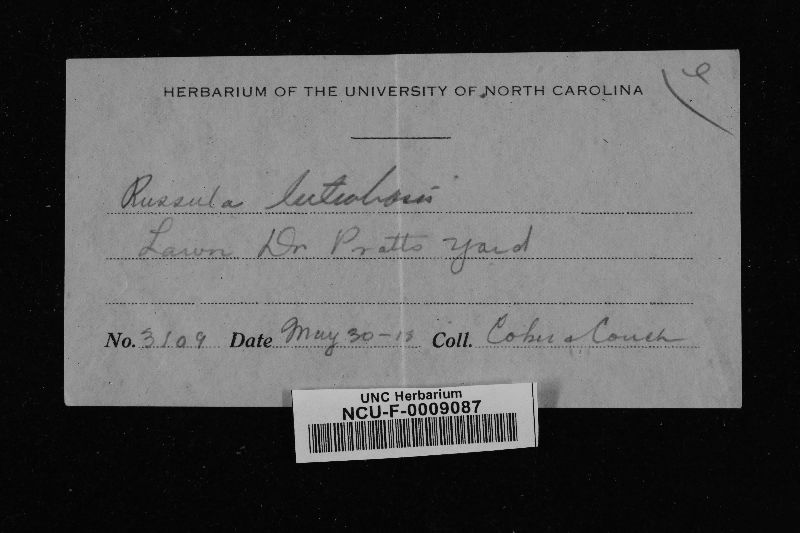 HERBARIUM OF THE UNIVERSITY OF NORTH CAROLINA
Russula luteobasis
Lawn Dr Pratts yard
No. 3109 Date May 30-18 Coll. Coker & Couch
UNC Herbarium
NCU-F-0009087